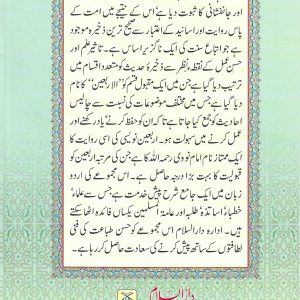 اور جانفشانی کا ثبوت دیا ہے اس کے نتیجے میں امت کے
پاس روایت اور اسانید کے اعتبار سے صحیح ترین ذخیرہ موجود
ہے جو اتباع سنت کی ایک ناگزیر اساس ہے۔ تاثیر علم اور
حسن عمل کے نقطۂ نظر سے ذخیرۂ حدیث کو متعدد اقسام میں
ترتیب دیا گیا ہے جن میں ایک مقبول قسم کو "الاربعین" کا نام
دیا گیا ہے جس میں مختلف موضوعات کی نسبت سے چالیس
احادیث کو جمع کیا جاتا ہے تاکہ ان کو حفظ کرنے، یاد رکھنے اور
عمل کرنے میں سہولت ہو۔ اربعین نویسی کی اسی روایت کا
ایک ممتاز نام امام نووی رحمہ اللہ کا ہے جن کی مرتبہ اربعین کو
قبولیت کا بہت بڑا درجہ حاصل ہے۔ اس مجموعے کی اردو
زبان میں ایک جامع شرح پیش خدمت ہے جس سے علماء،
خطباء، اساتذہ، طلبہ اور عامۃ المسلمین یکساں فائدہ اٹھا سکتے
ہیں۔ ادارہ دارالسلام اس مجموعے کو حسن طباعت کی فنی
لطافتوں کے ساتھ پیش کرنے کی سعادت حاصل کر رہا ہے۔
دارالسلام